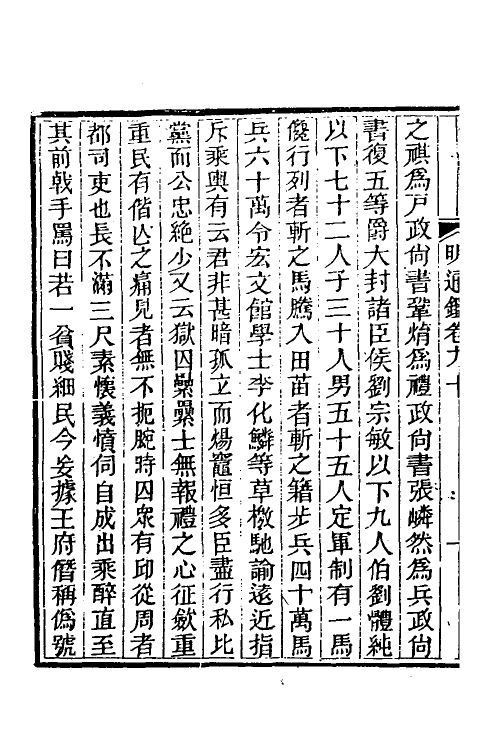 明通鑑卷九十
之祺爲戸政尙書鞏焴爲禮政尙書張嶙然爲兵政尙
書復五等爵大封諸臣侯劉宗敏以下九人伯劉體純
以下七十二人子三十人男五十五人定軍制有一馬
儳行列者斬之馬騰入田苗者斬之籍步兵四十萬馬
兵六十萬令宏文館學士李化鱗等草檄馳諭遠近指
斥乘輿有云君非甚暗孤立而煬竈恒多臣盡行私比
黨而公忠絶少又云獄囚纍纍士無報禮之心征斂重
重民有偕亾之痛見者無不扼腕時囚衆有邱從周者
都司吏也長不滿三尺素懷義憤伺自成出乘醉直至
其前戟手罵曰若一貧賤細民今妄據王府僭稱僞號